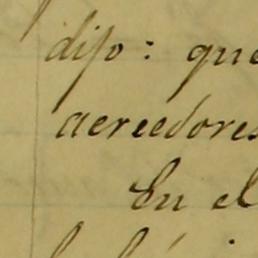 dijo: que
acreedores
En el